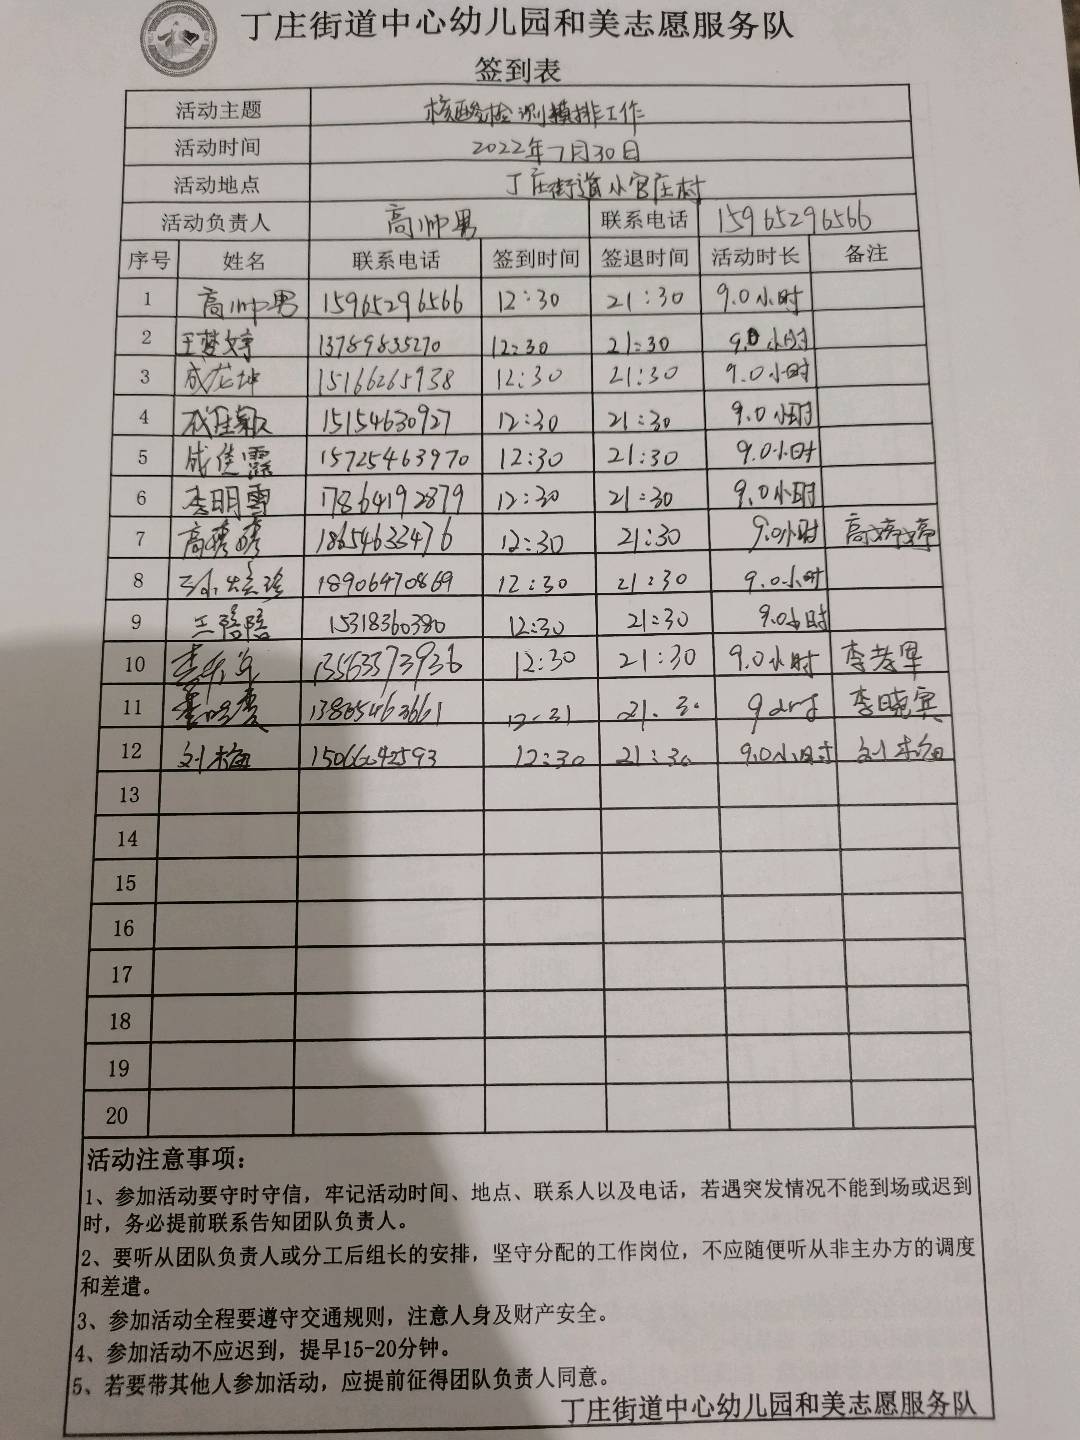 丁庄街道中心幼儿园和美志愿服务队
签到表
活动主题 核酸检测摸排工作
活动时间 2022年7月30日
活动地点 丁庄街道小官庄村
活动负责人 高帅男 联系电话 15965296566
序号 姓名 联系电话 签到时间 签退时间 活动时长 备注
1 高帅男 15965296566 12:30 21:30 9.0小时
2 王梦婷 13789835270 12:30 21:30 9.0小时
3 成龙坤 15166265938 12:30 21:30 9.0小时
4 15154630927 12:30 21:30 9.0小时
5 成佳霖 15725463970 12:30 21:30 9.0小时
6 李明雪 17864192879 12:30 21:30 9.0小时
7 18654633476 12:30 21:30 9.0小时 高婷婷
8 18906470869 12:30 21:30 9.0小时
9 王陪陪 15318360380 12:30 21:30 9.0小时
10 13563373936 12:30 21:30 9.0小时
11 21:30 李晓宾
12 刘梅 15066042593 12:30 21:30 9.0小时 刘梅
13
14
15
16
17
18
19
20
活动注意事项：
1、参加活动要守时守信，牢记活动时间、地点、联系人以及电话，若遇突发情况不能到场或迟到
时，务必提前联系告知团队负责人。
2、要听从团队负责人或分工后组长的安排，坚守分配的工作岗位，不应随便听从非主办方的调度
和差遣。
3、参加活动全程要遵守交通规则，注意人身及财产安全。
4、参加活动不应迟到，提早15-20分钟。
5、若要带其他人参加活动，应提前征得团队负责人同意。
丁庄街道中心幼儿园和美志愿服务队